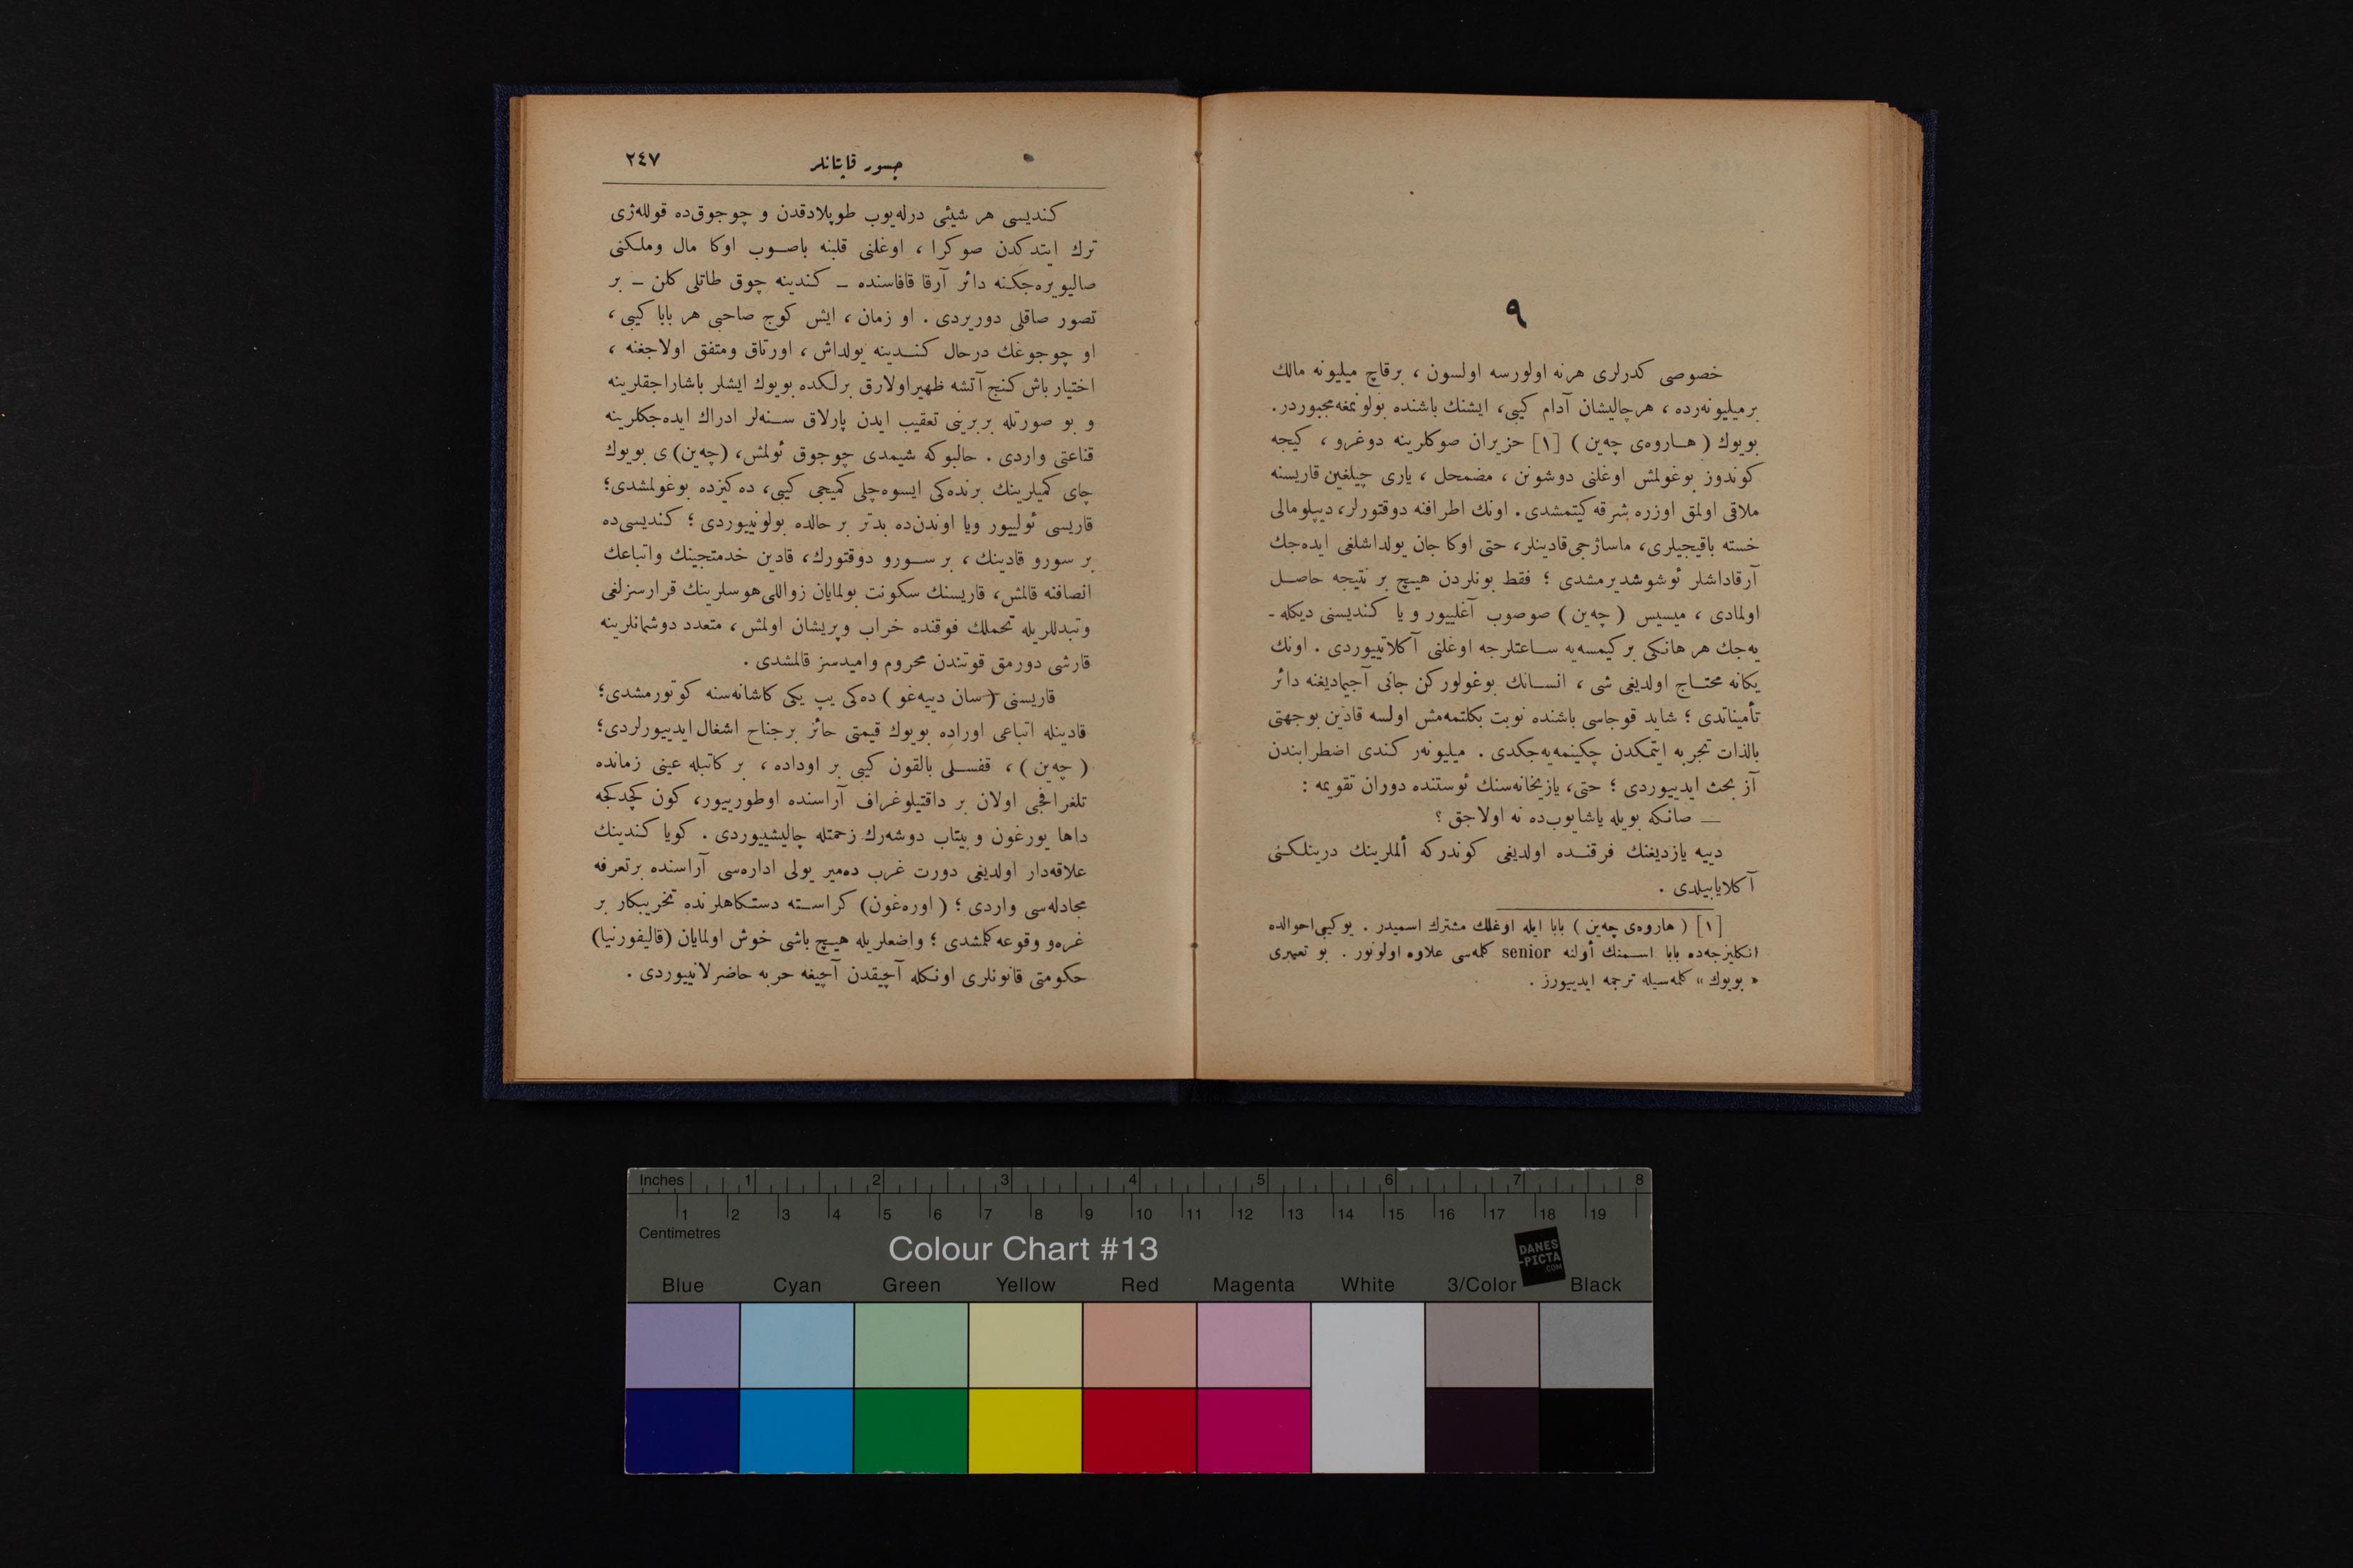 ٩
خصوصی كدرلری هرنه اولورسه اولسون ، برقاچ میلیونه مالك
برمیلیونه‌رده ، هرچالیشان آدام كیی، ایشنك باشنده بولونمغه مجبوردر.
بویوك ( هـاروه‌ی چه‌ین ) [١] حزیران صوكلرینه دوغرو ، كیجه
كوندوز بوغولمش اوغلنی دوشونن ، مضمحل ، یاری چیلغین قاریسنه
ملاقی اولمق اوزره شرقه كیتمشدی. اونك اطرافنه دوقتورلر، دیپلومالی
خسته باقیجیلری، ماساژجی قادینلر، حتی اوكا جان یولداشلغی ایده‌جك
آرقاداشلر ئوشوشدیرمشدی ؛ فقط بونلردن هیچ بر نتیجه حاصـل
اولمادی ، میسیس ( چه‌ین ) صوصوب آغلییور و یا كندیسنی دیكله ـ
یه‌جك هر هانكی بر كیمسه‌یه سـاعتلرجه اوغلنی آكلاتییوردی . اونك
یكانه محتـاج اولدیغی شی ، انسـانك بوغولوركن جانی آجیمادیغنه دائر
تأمیناتدی ؛ شاید قوجاسی باشنده نوبت بكلتمه‌مش اولسه قادین بوجهتی
بالذات تجربه ایتمكدن چكینمه‌یه‌جكدی . میلیونه‌ر كندی اضطرابندن
آز بحث ایدییوردی ؛ حتی، یازیخانه‌سنك ئوستنده دوران تقویمه :
— صانكه بویله یاشایوب‌ده نه اولاجق ؟
دییه یازدیغنك فرقنـده اولدیغی كوندركه ألملرینك درینلكنی
آكلایابیلدی .
[١] ( هاروه‌ی چه‌ین ) بابا ایله اوغلك مشترك اسمیدر . بو كیی احوالده
انكلیزجه‌ده بابا اسـمنك أولنه senior كلمه‌سی علاوه اولونور . بو تعبیری
« بویوك » كلمه‌سیله ترجمه ایدییورز .
جسور قاپتانلر ٢٤٧
كندیسی هر شیئی درله‌یوب طوپلادقدن و چوجوق‌ده قوللەژی
ترك ایتدكدن صوكرا ، اوغلنی قلبنه باصـوب اوكا مال وملكنی
صالیویره‌جكنه دائر آرقا قافاسنده ـ كندینه چوق طاتلی كلن ـ بر
تصور صاقلی دوریردی . او زمان ، ایش كوج صاحبی هر بابا كیی ،
او چوجوغك درحال كنـدینه یولداش ، اورتاق ومتفق اولاجغنه ،
اختیار باش كنج آتشه ظهیر اولارق برلكده بویوك ایشلر باشاراجقلرینه
و بو صورتله بربرینی تعقیب ایدن پارلاق سـنه‌لر ادراك ایده‌جكلرینه
قناعتی واردی . حالبوكه شیمدی چوجوق ئولمش، (چه‌ین) ی بویوك
چای كمیلرینك برنده‌كی ایسوه‌چلی كمیجی كیی، ده‌كیزده بوغولمشدی؛
قاریسی ئولییور ویا اوندن‌ده بدتر بر حالده بولونییوردی ؛ كندیسی‌ده
بر سورو قادینك ، بر سـورو دوقتورك، قادین خدمتجینك واتباعك
انصافنه قالمش، قاریسنك سكونت بولمایان زواللی هوسلرینك قرارسزلغی
وتبدللریله تحملك فوقنده خراب وپریشان اولمش ، متعدد دوشمانلرینه
قارشی دورمق قوتندن محروم وامیدسز قالمشدی .
قاریسنی ( سان دییه‌غو ) ده‌كی یپ یكی كاشانه‌سنه كوتورمشدی؛
قادینله اتباعی اوراده بویوك قیمتی حائز برجناح اشغال ایدییورلردی؛
( چه‌ین ) ، قفسـلی بالقون كیی بر اوداده ، بر كاتبله عینی زمانده
تلغرافجی اولان بر داقتیلوغراف آراسنده اوطورییور، كون كچدكجه
داها یورغون و بیتاب دوشه‌رك زحمتله چالیشییوردی . كویا كندینك
علاقه‌دار اولدیغی دورت غرب ده‌میر یولی اداره‌سی آراسنده برتعرفه
مجادله‌سی واردی ؛ ( اوره‌غون) كراسـته دستكاهلرنده تخریبكار بر
غره‌و وقوعه كلمشدی ؛ واضعلریله هیـچ باشی خوش اولمایان (قالیفورنیا)
حكومتی قانونلری اونكله آچیقدن آچیغه حربه حاضرلانییوردی .
Inches 1 2 3 4 5 6 7 8
1 2 3 4 5 6 7 8 9 10 11 12 13 14 15 16 17 18 19
Centimetres
Colour Chart #13
DANES
-PICTA
.COM
Blue Cyan Green Yellow Red Magenta White 3/Color Black